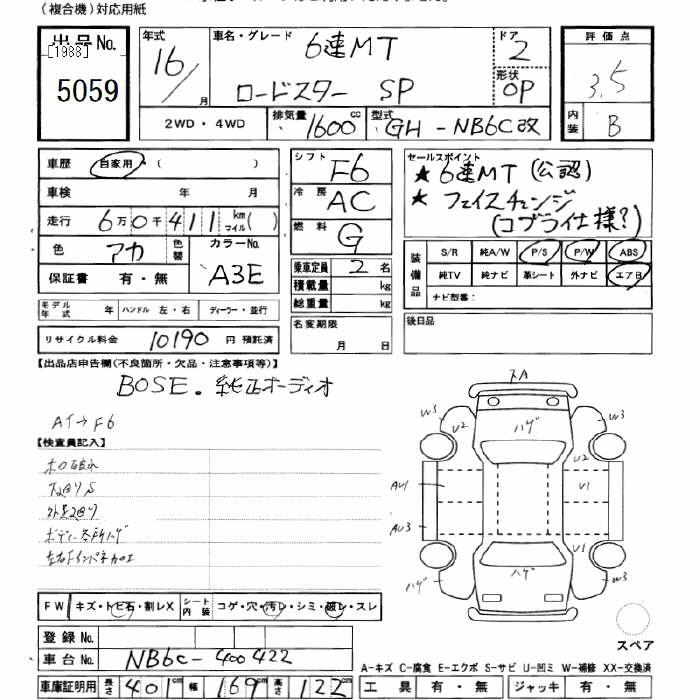 (複合機)対応用紙
出品No. [1988] 5059
年式 16/ 月
車名・グレード 6速MT
ロードスター SP
ドア 2
形状 OP
評価点 3.5
内装 B
2WD・4WD
排気量 1600 cc
型式 GH-NB6C改
車歴 自家用・( )
車検 年 月
走行 6万0千411 km マイル( )
色 アカ 色替 カラーNo. A3E
保証書 有・無
モデル年式 年 ハンドル 左・右 ディーラー・並行
リサイクル料金 10190 円 預託済
シフト F6
冷房 AC
燃料 G
乗車定員 2 名
積載量 kg
総重量 kg
名変期限 月 日
セールスポイント
★ 6速MT (公認)
★ フェイスチェンジ
(コブライ仕様?)
装備品 S/R 純A/W P/S P/W ABS
純TV 純ナビ 革シート 外ナビ エアB
ナビ型番:
後日品
【出品店申告欄(不良箇所・欠品・注意事項等)】
BOSE.純正オーディオ
AT→F6
【検査員記入】
ボディー各所ハゲ
スA
W3 U2 ハゲ W3
U2
AU1 U1
AU3
U1
ハゲ ハゲ W3
スペア
FW キズ・トビ石・割レX シート内装 コゲ・穴・汚レ・シミ・破レ・スレ
登録No.
車台No. NB6C-400422
車庫証明用 長さ 401cm 幅 169cm 高さ 122cm
A-キズ C-腐食 E-エクボ S-サビ U-凹ミ W-補修 XX-交換済
工具 有・無 ジャッキ 有・無